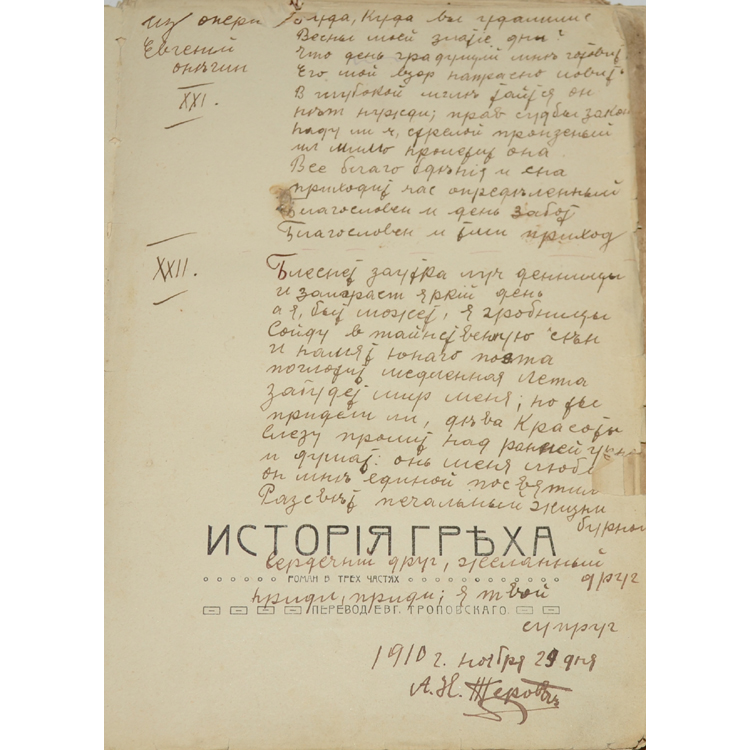 из оперы
Евгений
Онѣгин
XXI.
Куда, Куда вы удалились
Весны моей златые дни?
Что день градущий мнѣ готовит
Его мой взор напрасно ловит
В глубокой мглѣ таится он
нѣт нужди; прав судьбы закон
паду ли я, стрелой пронзеный
ил мимо пролетит она
Все благо бдѣнія и сна
приходит час опредѣленный
Благословен и день забот
Благословен и тми приход
XXII.
Блеснет заутка луч денницы
и заиграет яркій день
а я, быт может, я гробницы
Сойду в таинственную сѣн
и памят юнаго поэта
поглотит медленная Лета
забудет мир меня; но ты
придеш ли, дѣва Красоты
слезу пролит над ранней урной
и думат: онь меня люби
он мнѣ единой посвятил
Разсвѣт печальный жизни
бурной
ИСТОРІЯ ГРѢХА
сердечний друг, желанный
РОМАН В ТРЕХ ЧАСТЯХ
друг
приди, приди; я твой
ПЕРЕВОД ЕВГ. ТРОПОВСКАГО.
супруг
1910 г. ноября 29 дня
А. Н.